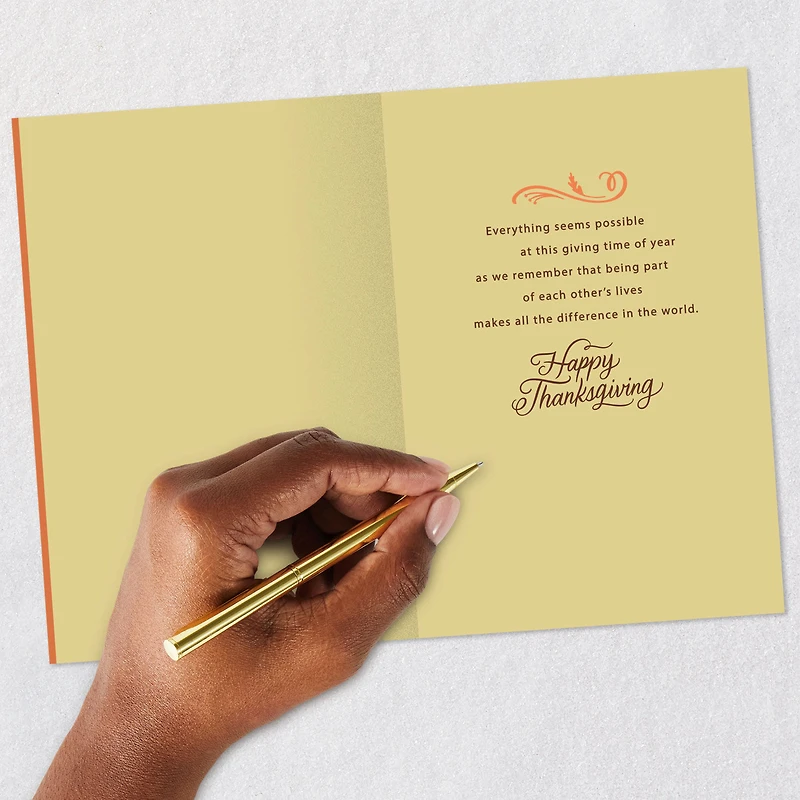 Everything seems possible
at this giving time of year
as we remember that being part
of each other's lives
makes all the difference in the world.
Happy
Thanksgiving